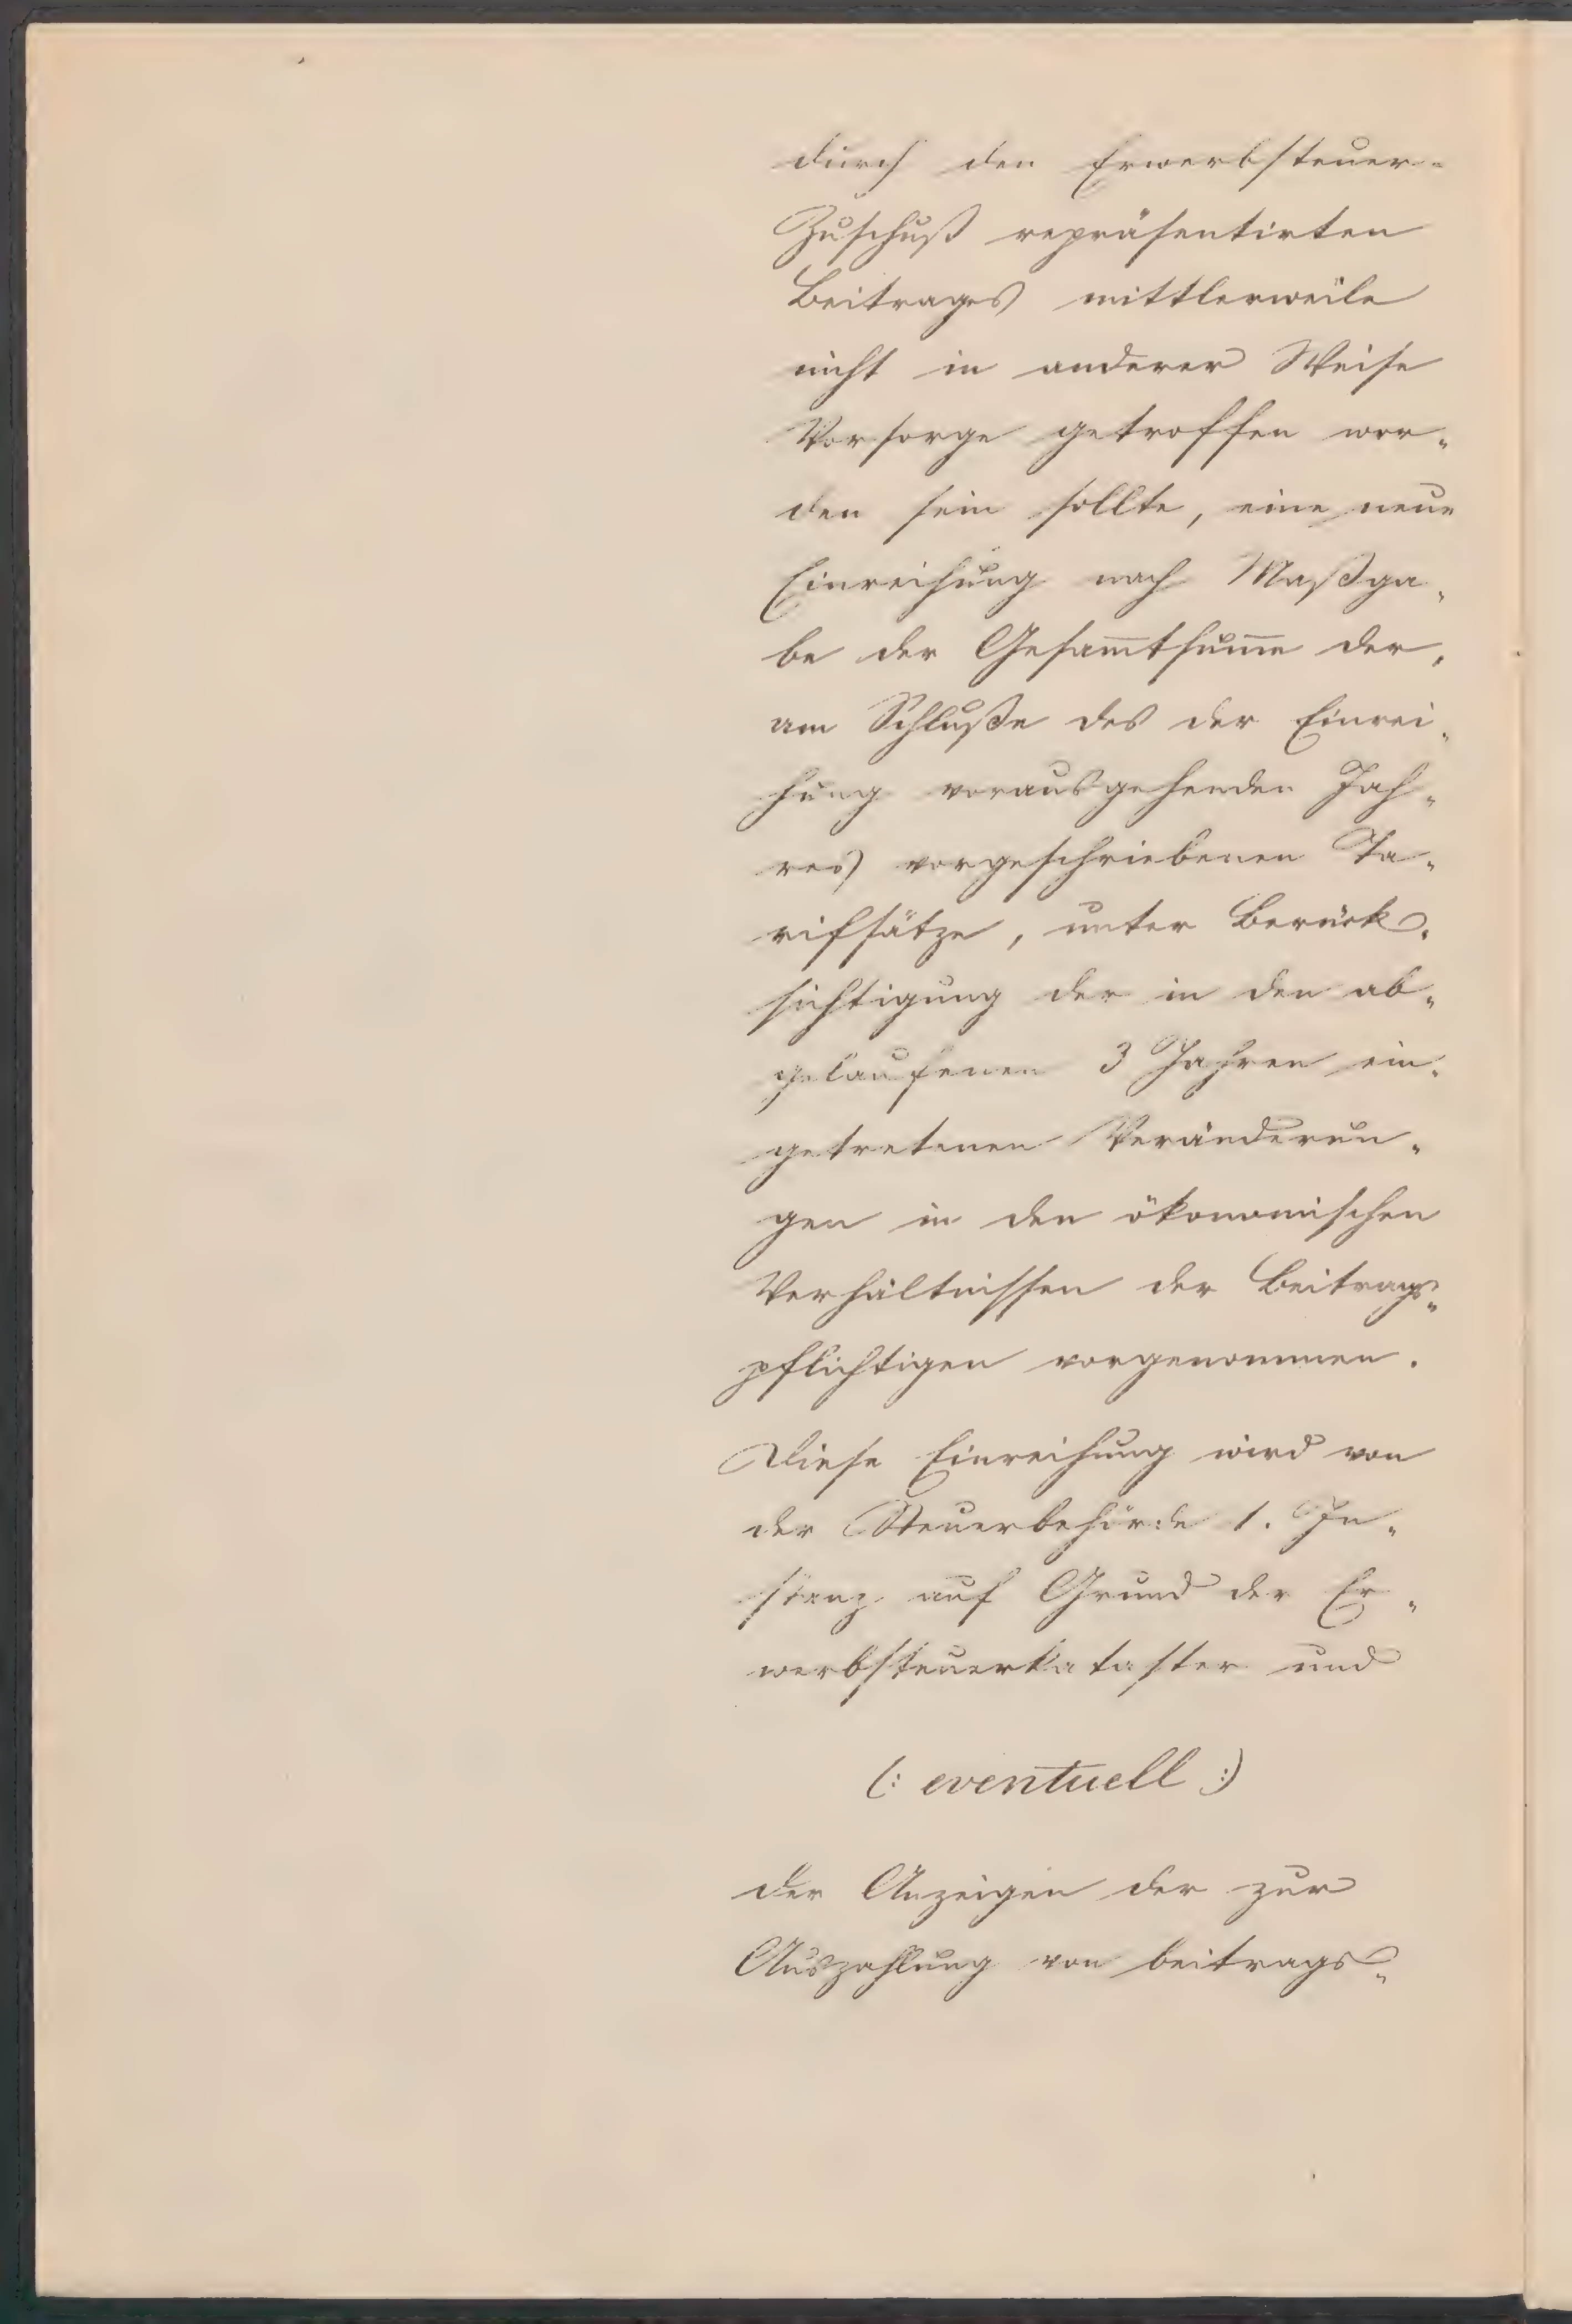 durch den Erwerbsteuer-
Zuschuß repräsentirten
Beitrages mittlerweile
nicht in anderer Weise
Vorsorge getroffen wor-
den sein sollte, eine neue
Einreihung nach Maßga-
be der Gesam̅tsum̅e der,
am Schluße des der Einrei-
hung vorausgehenden Jah-
res vorgeschriebenen Ta-
rifsätze, unter Berück-
sichtigung der in den ab-
gelaufenen 3 Jahren ein-
getretenen Veränderun-
gen in den ökonomischen
Verhältnissen der Beitrags-
pflichtigen vorgenommen.
Diese Einreihung wird von
der Steuerbehörde 1. In-
stanz auf Grund der Er-
werbsteuerkataster und
(: eventuell :)
der Anzeigen der zur
Auszahlung von beitrags-